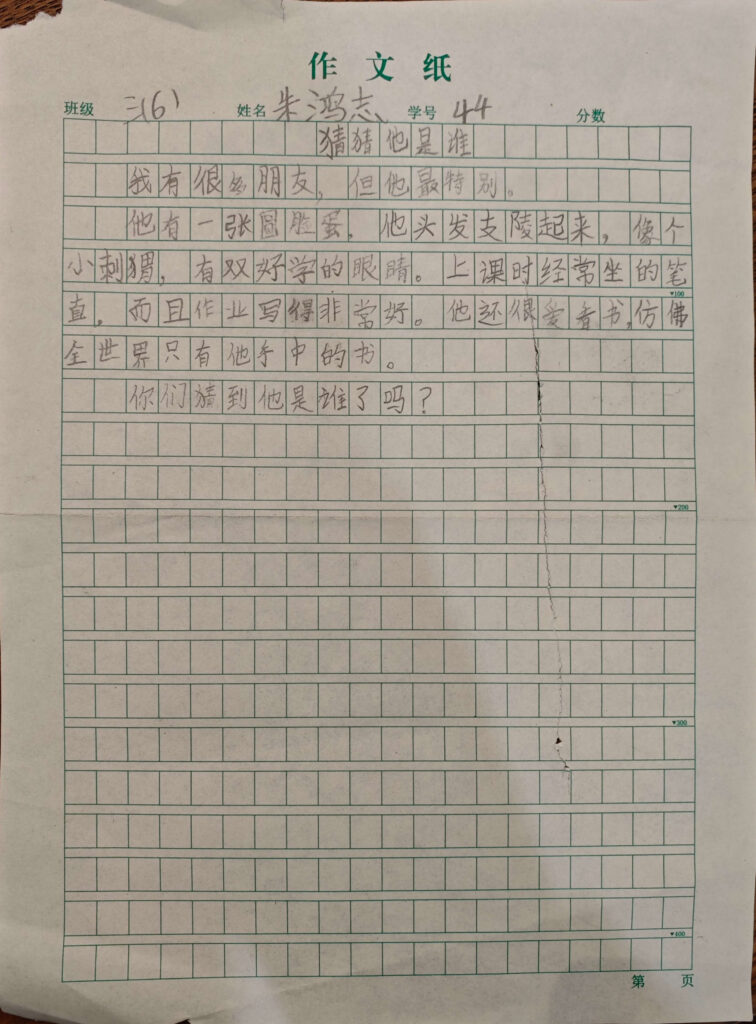 作文纸
班级 三(6) 姓名 朱鸿志 学号 44 分数
猜猜他是谁
我有很多朋友，但他最特别。
他有一张圆脸蛋，他头发支陵起来，像个
小刺猬，有双好学的眼睛。上课时经常坐的笔
▾100
直，而且作业写得非常好。他还很爱看书，仿佛
全世界只有他手中的书。
你们猜到他是谁了吗？
▾200
▾300
▾400
第 页